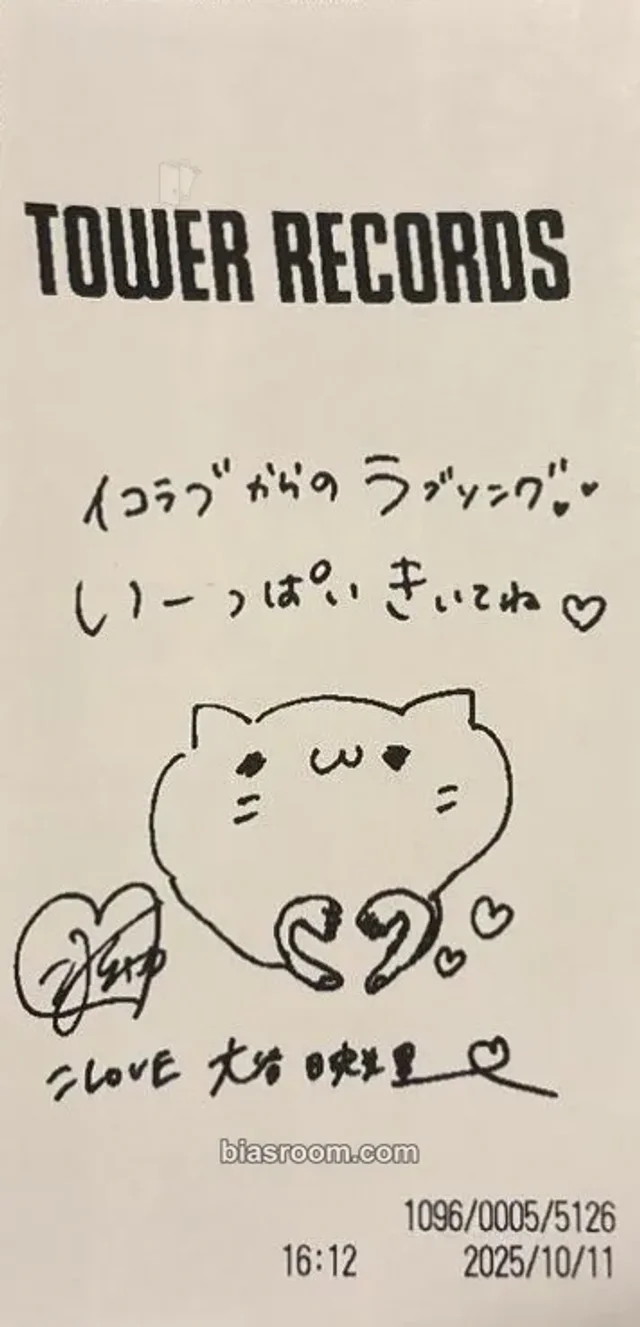 TOWER RECORDS
イコラブからのラブソング♥♥
いーっぱいきいてね♡
=LOVE 大谷映美里
biasroom.com
1096/0005/5126
16:12 2025/10/11